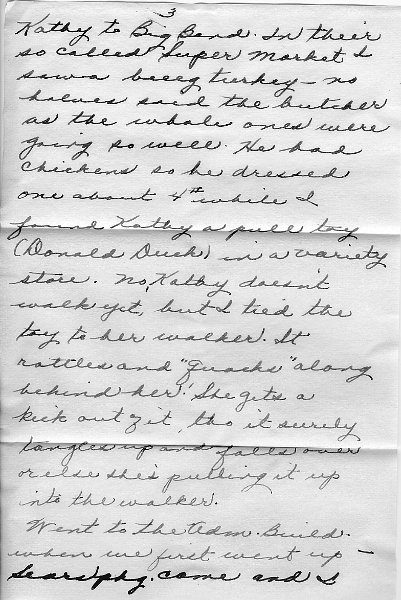 3
Kathy to Big Bend. In their
so called Super Market I
saw a beeeg turkey - no
halves said the butcher
as the whole ones were
going so well. He had
chickens so he dressed
one about 4# while I
found Kathy a pull toy
(Donald Duck) in a variety
store. No, Kathy doesn't
walk yet, but I tied the
toy to her walker. It
rattles and "quacks" along
behind her! She gets a
kick out of it, tho it surely
tangles up and falls over
or else she's pulling it up
into the walker.
Went to the Adm. Build.
when we first went up -
Sears' pkg. came and I